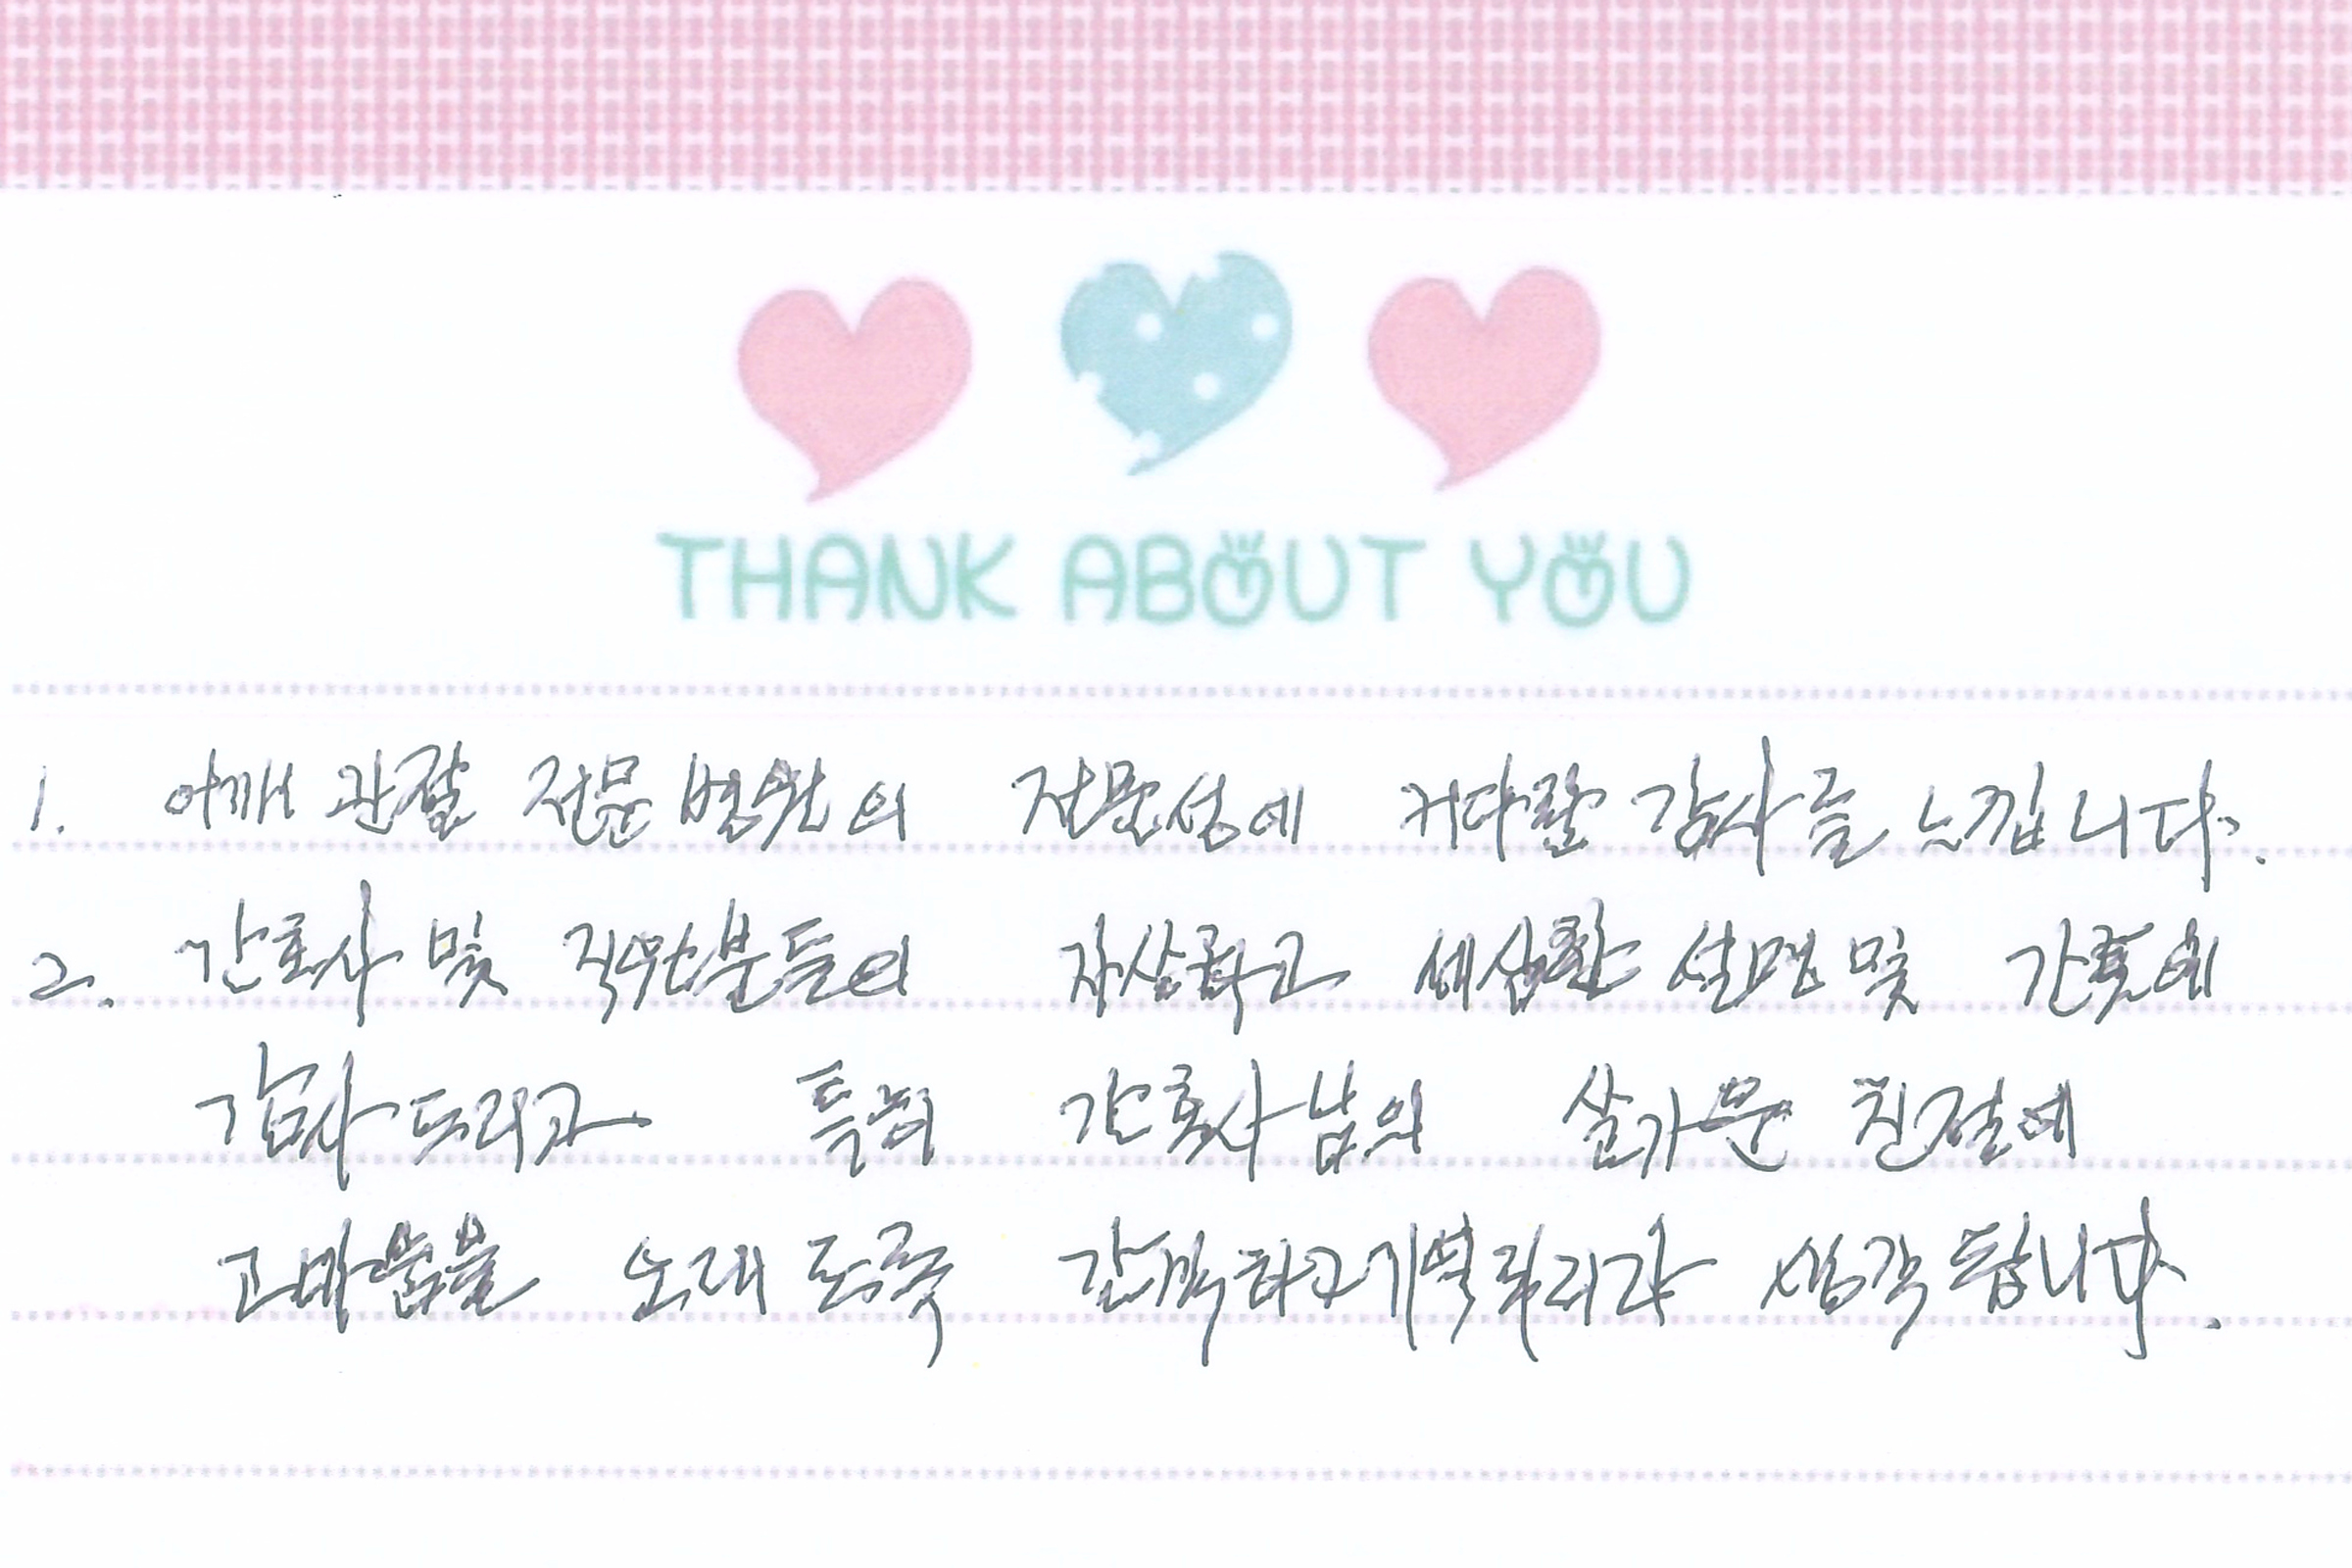 THANK ABOUT YOU
1. 어깨 관절 전문 병원의 전문성에 커다란 감사를 느낍니다.
2. 간호사 및 직원분들의 자상하고 세심한 설명 및 간호에
감사드리고 특히 간호사님의 살가운 친절에
고마움을 오래도록 간직하고 기억되리라 생각됩니다.